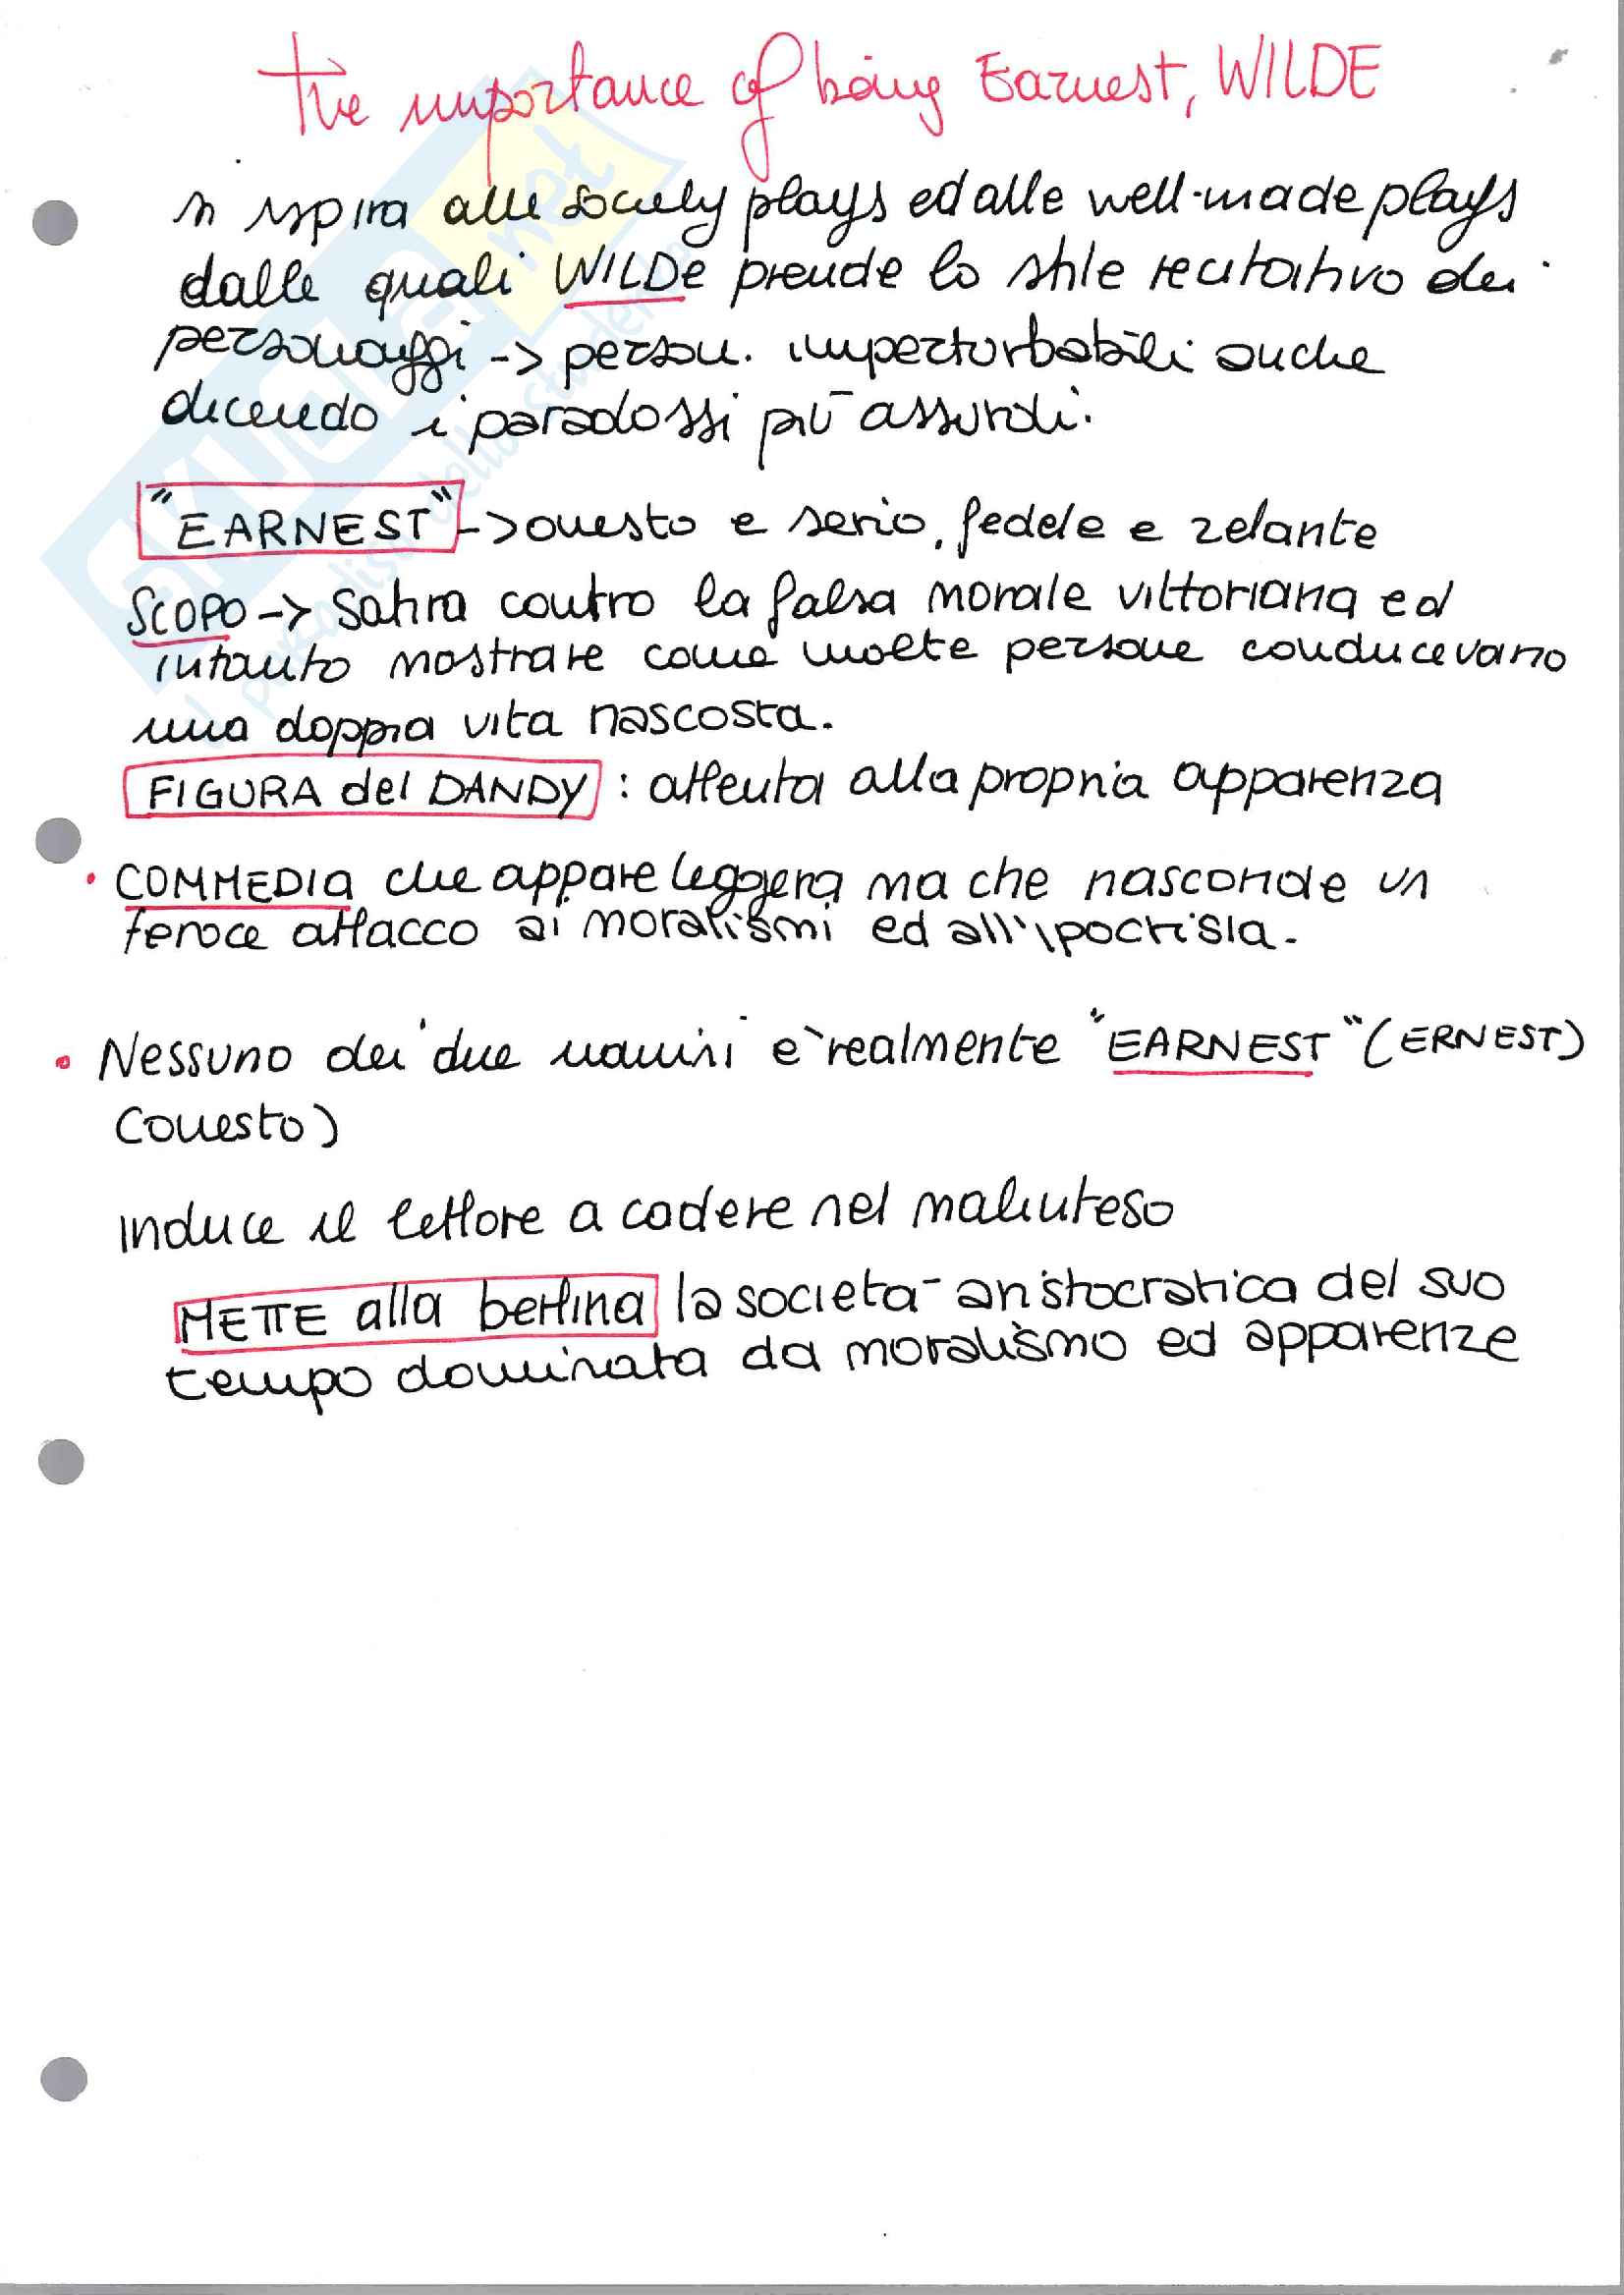 The importance of being Earnest, WILDE
si ispira alle society plays ed alle well-made plays
dalle quali WILDE prende lo stile recitativo dei
personaggi -> person. imperturbabili anche
dicendo i paradossi più assurdi.
"EARNEST" -> onesto e serio, fedele e zelante
SCOPO -> Satira contro la falsa morale vittoriana ed
intanto mostrare come molte persone conducevano
una doppia vita nascosta.
FIGURA del DANDY : attenta alla propria apparenza
• COMMEDIA che appare leggera ma che nasconde un
feroce attacco ai moralismi ed all'ipocrisia.
• Nessuno dei due uomini è realmente "EARNEST" (ERNEST)
(onesto)
induce il lettore a cadere nel malinteso
METTE alla berlina la società aristocratica del suo
tempo dominata da moralismo ed apparenze
SKUOLA.net
il paradiso dello studente